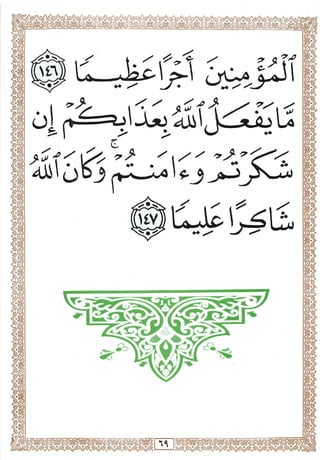 ٱلۡمُؤۡمِنِينَ أَجۡرًا عَظِيمٗا ١٤٦
مَّا يَفۡعَلُ ٱللَّهُ بِعَذَابِكُمۡ إِن
شَكَرۡتُمۡ وَءَامَنتُمۡۚ وَكَانَ ٱللَّهُ
شَاكِرًا عَلِيمٗا ١٤٧
٦٩